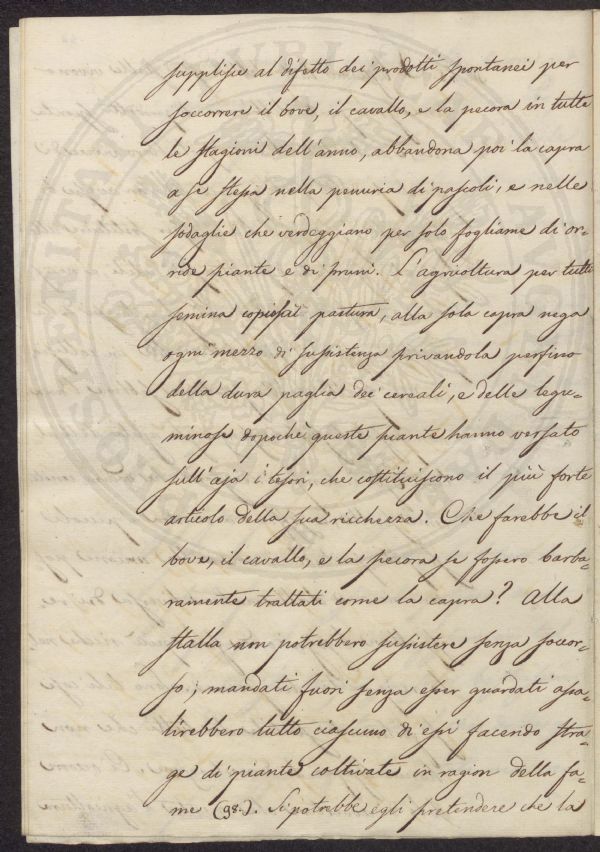 supplisce al difetto dei prodotti spontanei per
soccorrere il bove, il cavallo, e la pecora in tutte
le stagioni dell'anno, abbandona poi la capra
a se stessa nella penuria di pascoli, e nelle
sodaglie che verdeggiano per solo fogliame di or-
ride piante e di pruni. L'agricoltura per tutti
semina copiosa pastura, alla sola capra nega
ogni mezzo di sussistenza privandola perfino
della dura paglia dei cereali, e delle legu-
minose dopochè queste piante hanno versato
sull'aja i tesori, che costituiscono il più forte
articolo della sua ricchezza. Che farebbe il
bove, il cavallo, e la pecora se fossero barba-
ramente trattati come la capra? Alla
stalla non potrebbero sussistere senza soccor-
so; mandati fuori senza esser guardati assa-
lirebbero tutto ciascuno di essi facendo stra-
ge di piante coltivate in ragion della fa-
me (98.). Si potrebbe egli pretendere che la